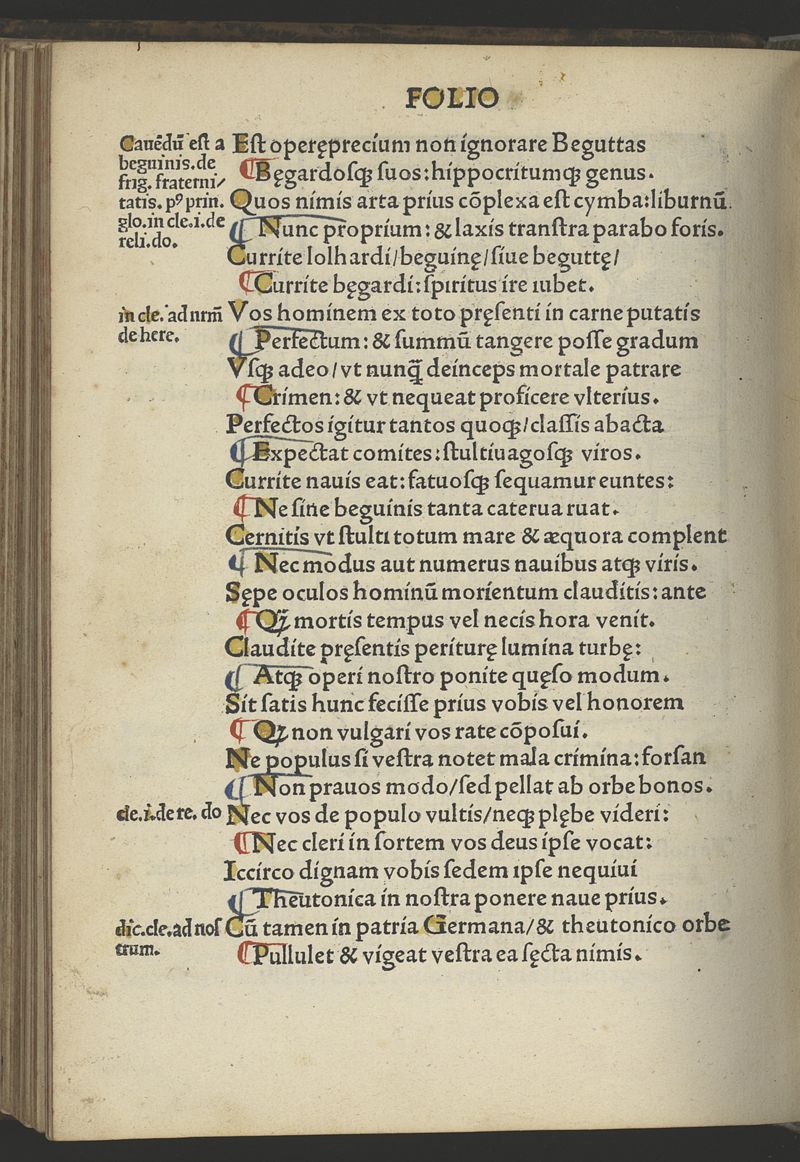 FOLIO
Cauēdū est a
beguinis. de
frig. fraterni/
tatis. pꝰ prin.
glo. in cle. i. de
reli. do.
Est operęprecium non ignorare Beguttas
¶ Bęgardosqꝫ suos: hippocritumqꝫ genus.
Quos nimis arta prius cōplexa est cymba: liburnū.
¶ Nunc proprium: & laxis transtra parabo foris.
Currite lolhardi/beguinę/siue beguttę/
¶ Currite bęgardi: spiritus ire iubet.
in cle. ad nrm̄
de here.
Vos hominem ex toto pręsenti in carne putatis
¶ Perfectum: & summū tangere posse gradum
Vsqꝫ adeo/vt nunq̄ deinceps mortale patrare
¶ Crimen: & vt nequeat proficere vlterius.
Perfectos igitur tantos quoqꝫ/classis abacta
¶ Expectat comites: stultiuagosqꝫ viros.
Currite nauis eat: fatuosqꝫ sequamur euntes:
¶ Ne sine beguinis tanta caterua ruat.
Cernitis vt stulti totum mare & æquora complent
¶ Nec modus aut numerus nauibus atqꝫ viris.
Sępe oculos hominū morientum clauditis: ante
¶ Qꝫ mortis tempus vel necis hora venit.
Claudite pręsentis periturę lumina turbę:
¶ Atqꝫ operi nostro ponite quęso modum.
Sit satis hunc fecisse prius vobis vel honorem
¶ Qꝫ non vulgari vos rate cōposui.
Ne populus si vestra notet mala crimina: forsan
¶ Non prauos modo/sed pellat ab orbe bonos.
cle. i. de re. do
Nec vos de populo vultis/neqꝫ plębe videri:
¶ Nec cleri in sortem vos deus ipse vocat:
Iccirco dignam vobis sedem ipse nequiui
¶ Theutonica in nostra ponere naue prius.
dic. cle. ad nos
trum.
Cū tamen in patria Germana/& theutonico orbe
¶ Pullulet & vigeat vestra ea sęcta nimis.